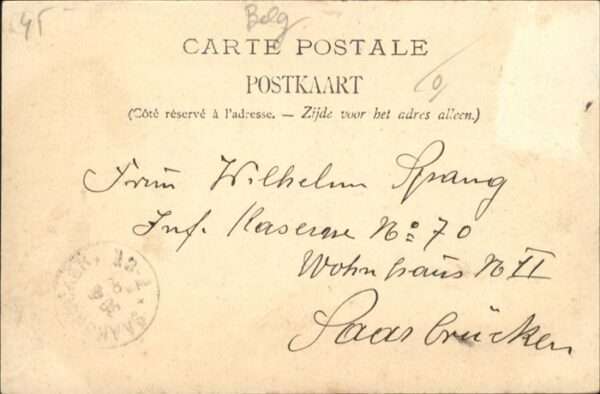 45 Belg
CARTE POSTALE
POSTKAART
(Côté réservé à l'adresse. — Zijde voor het adres alleen.)
Frau Wilhelm Spang
Inf. Kaserne No 70
Wohnhaus N II
Saarbrücken